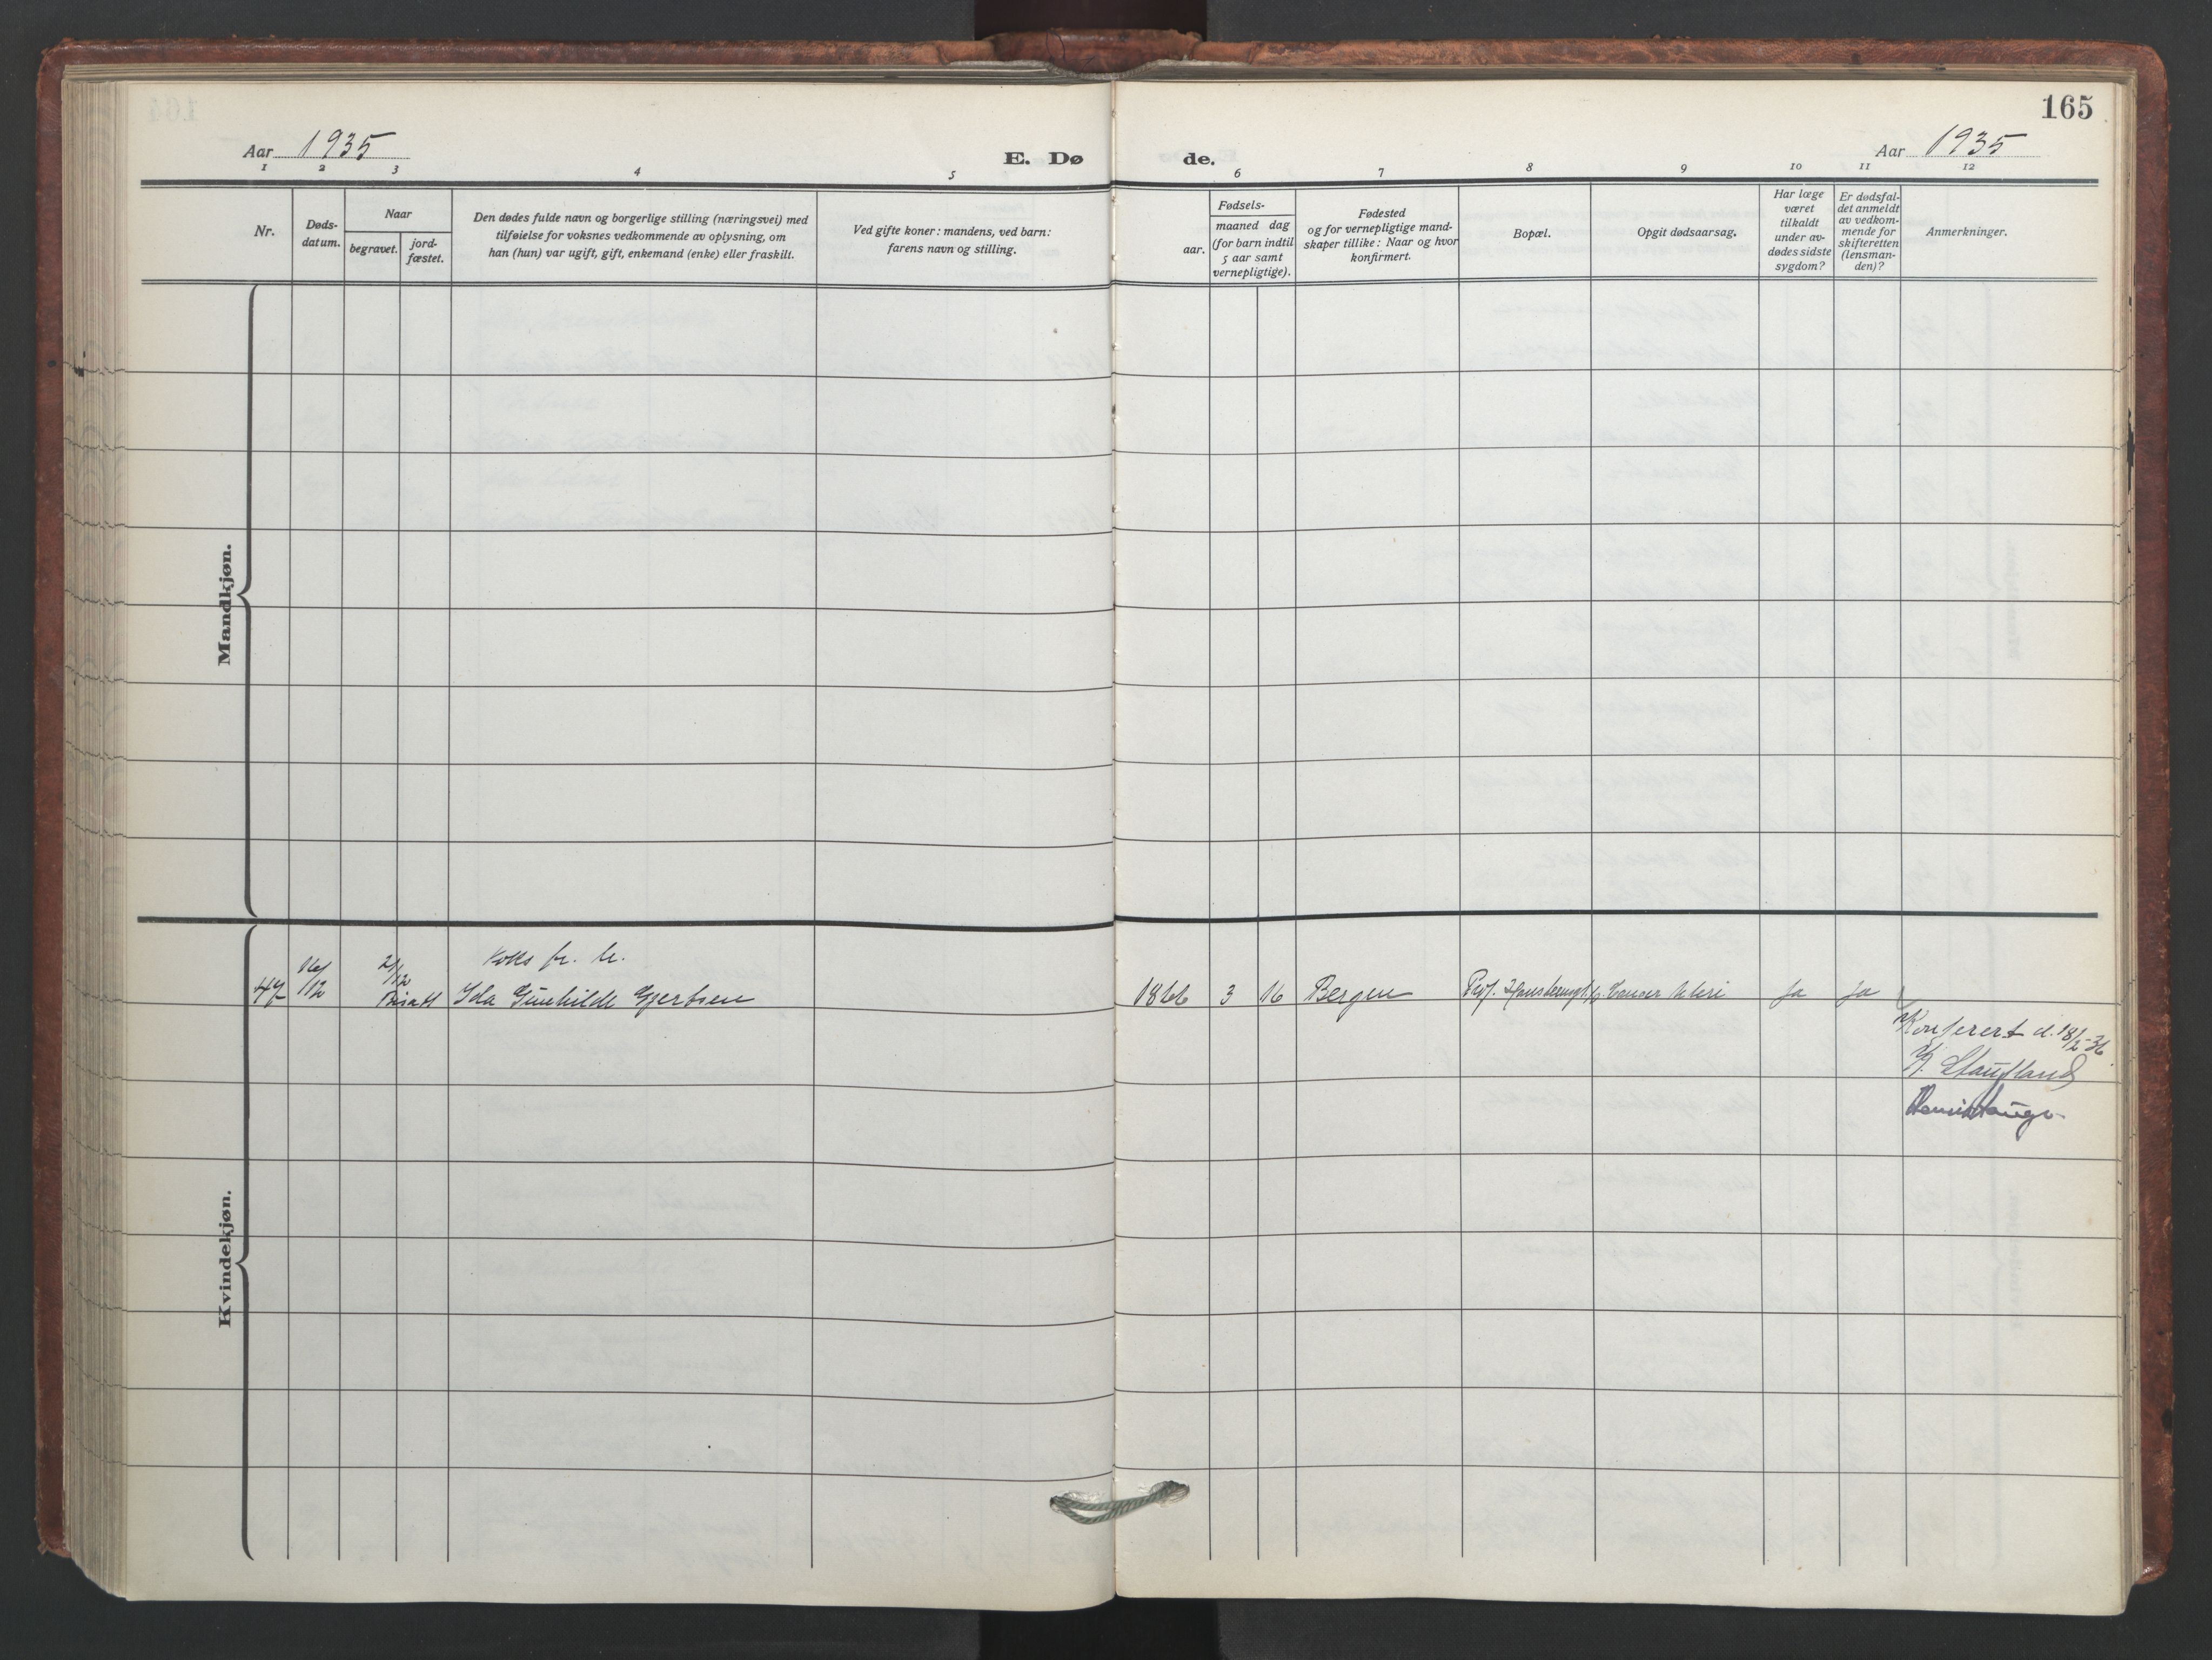 165
Aar 1935
E. Dø
de.
Aar 1935
1 2 3 4 5 6 7 8 9 10 11 12
Nr.
Døds-
datum.
Naar
begravet.
jord-
fæstet.
Den dødes fulde navn og borgerlige stilling (næringsvei) med
tilføielse for voksnes vedkommende av oplysning, om
han (hun) var ugift, gift, enkemand (enke) eller fraskilt.
Ved gifte koner: mandens, ved barn:
farens navn og stilling.
aar.
Fødsels-
maaned dag
(for barn indtil
5 aar samt
vernepligtige).
Fødested
og for vernepligtige mand-
skaper tillike: Naar og hvor
konfirmert.
Bopæl.
Opgit dødsaarsag.
Har læge
været
tilkaldt
under av-
dødes sidste
sygdom?
Er dødsfal-
det anmeldt
av vedkom-
mende for
skifteretten
(lensman-
den)?
Anmerkninger.
Mandkjøn.
Kvindekjøn.
16/12
21/12
47 Bisatt Ida Gunhilde Gjertsen 1866 3 16 Bergen Cancer Uteri ja ja
Konferert d. 18/2-36